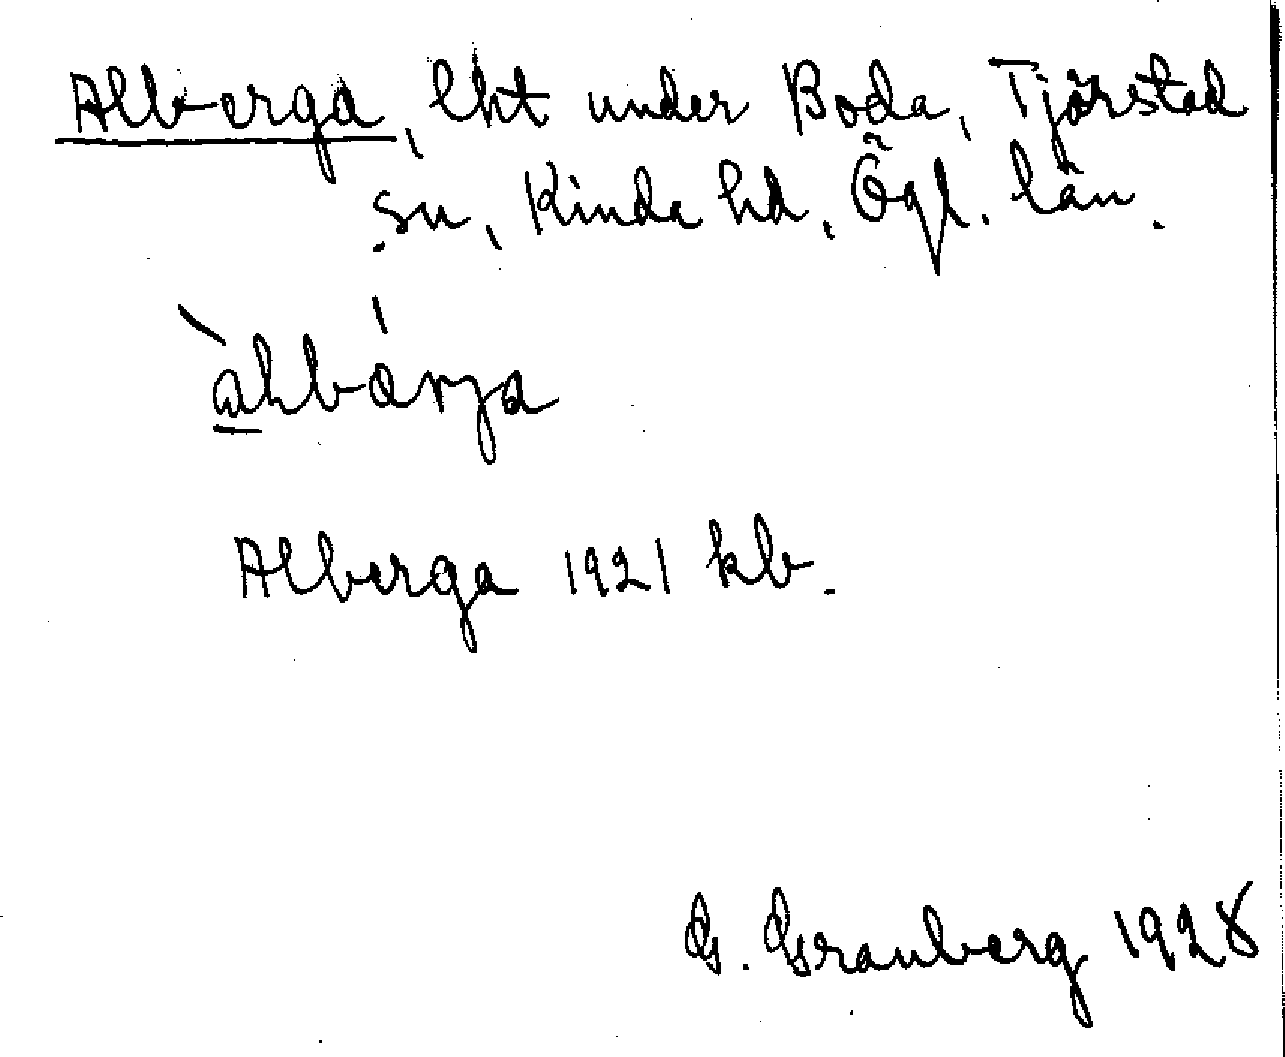 Alberga, lht under Boda, Tjärstad
sn, Kinda hd, Ögl. län.
àlbárja
Alberga 1921 kb.
G. Granberg 1928